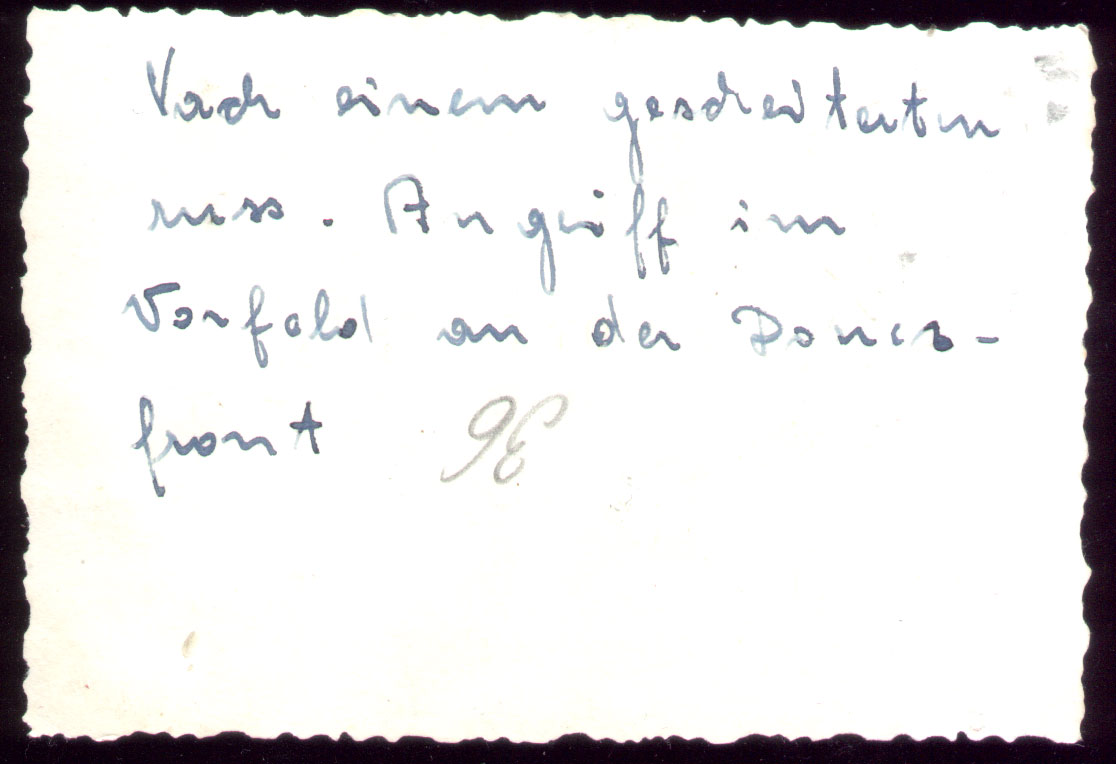 Nach einem gescheiterten
russ. Angriff im
Vorfeld an der Donez-
front